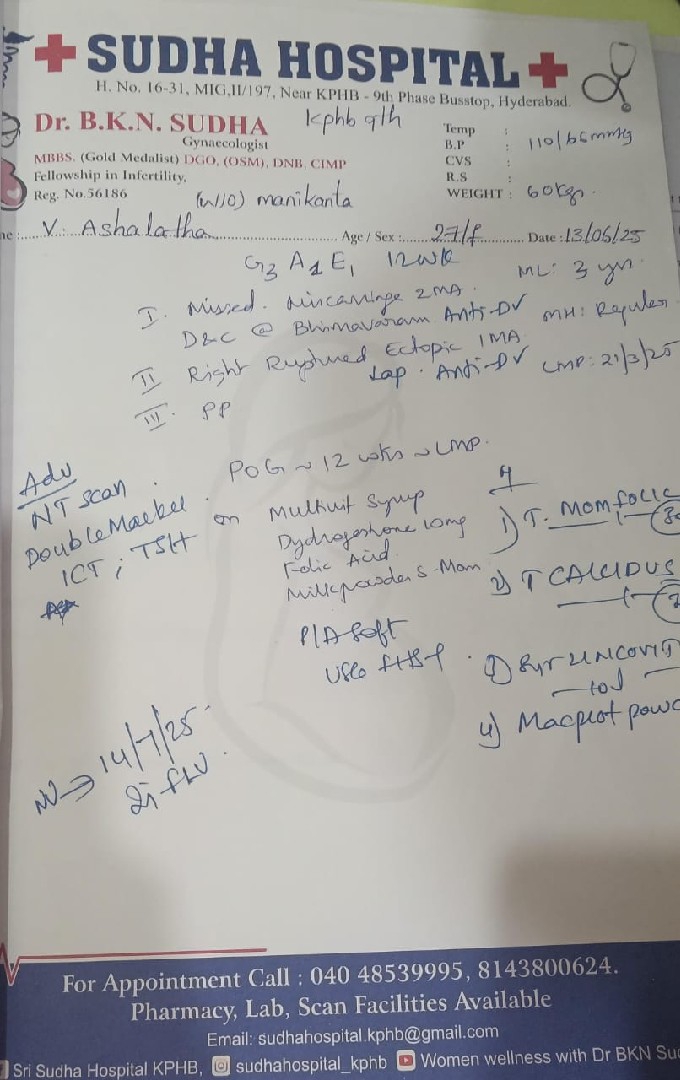 SUDHA HOSPITAL
H. No. 16-31, MIG,II/197, Near KPHB - 9th Phase Busstop, Hyderabad.
Dr. B.K.N. SUDHA
Kphb 9th
Gynaecologist
MBBS. (Gold Medalist) DGO, (OSM), DNB. CIMP
Fellowship in Infertility,
Reg. No.56186
(W/o) manikanta
Temp :
B.P : 110/66mmHg
CVS :
R.S :
WEIGHT : 60kgs.
V. Ashalatha Age / Sex : 27/f Date : 13/06/25
G3 A1 E1 12wk ML: 3 yrs.
I. Missed. Miscarriage 2MA.
D&C @ Bhimavaram Anti-D√ MH: Regular
II Right Ruptured Ectopic 1MA
Lap. Anti-D√ LMP: 21/3/25
III. PP
POG ~ 12 wks ~ LMP.
Adv
NT scan
Double Marker
ICT ; TSH
on Multivit Syrup
Dydrogestrone 10mg
Folic Acid
Milk powder S Mom
P/A Soft
1) T. MOMFOLIC
2) T CALCIDUS
3) Syr ZINCOVIT
4) Macprot powd
NV → 14/7/25
For Appointment Call : 040 48539995, 8143800624.
Pharmacy, Lab, Scan Facilities Available
Email: sudhahospital.kphb@gmail.com
Sri Sudha Hospital KPHB, sudhahospital_kphb Women wellness with Dr BKN Su